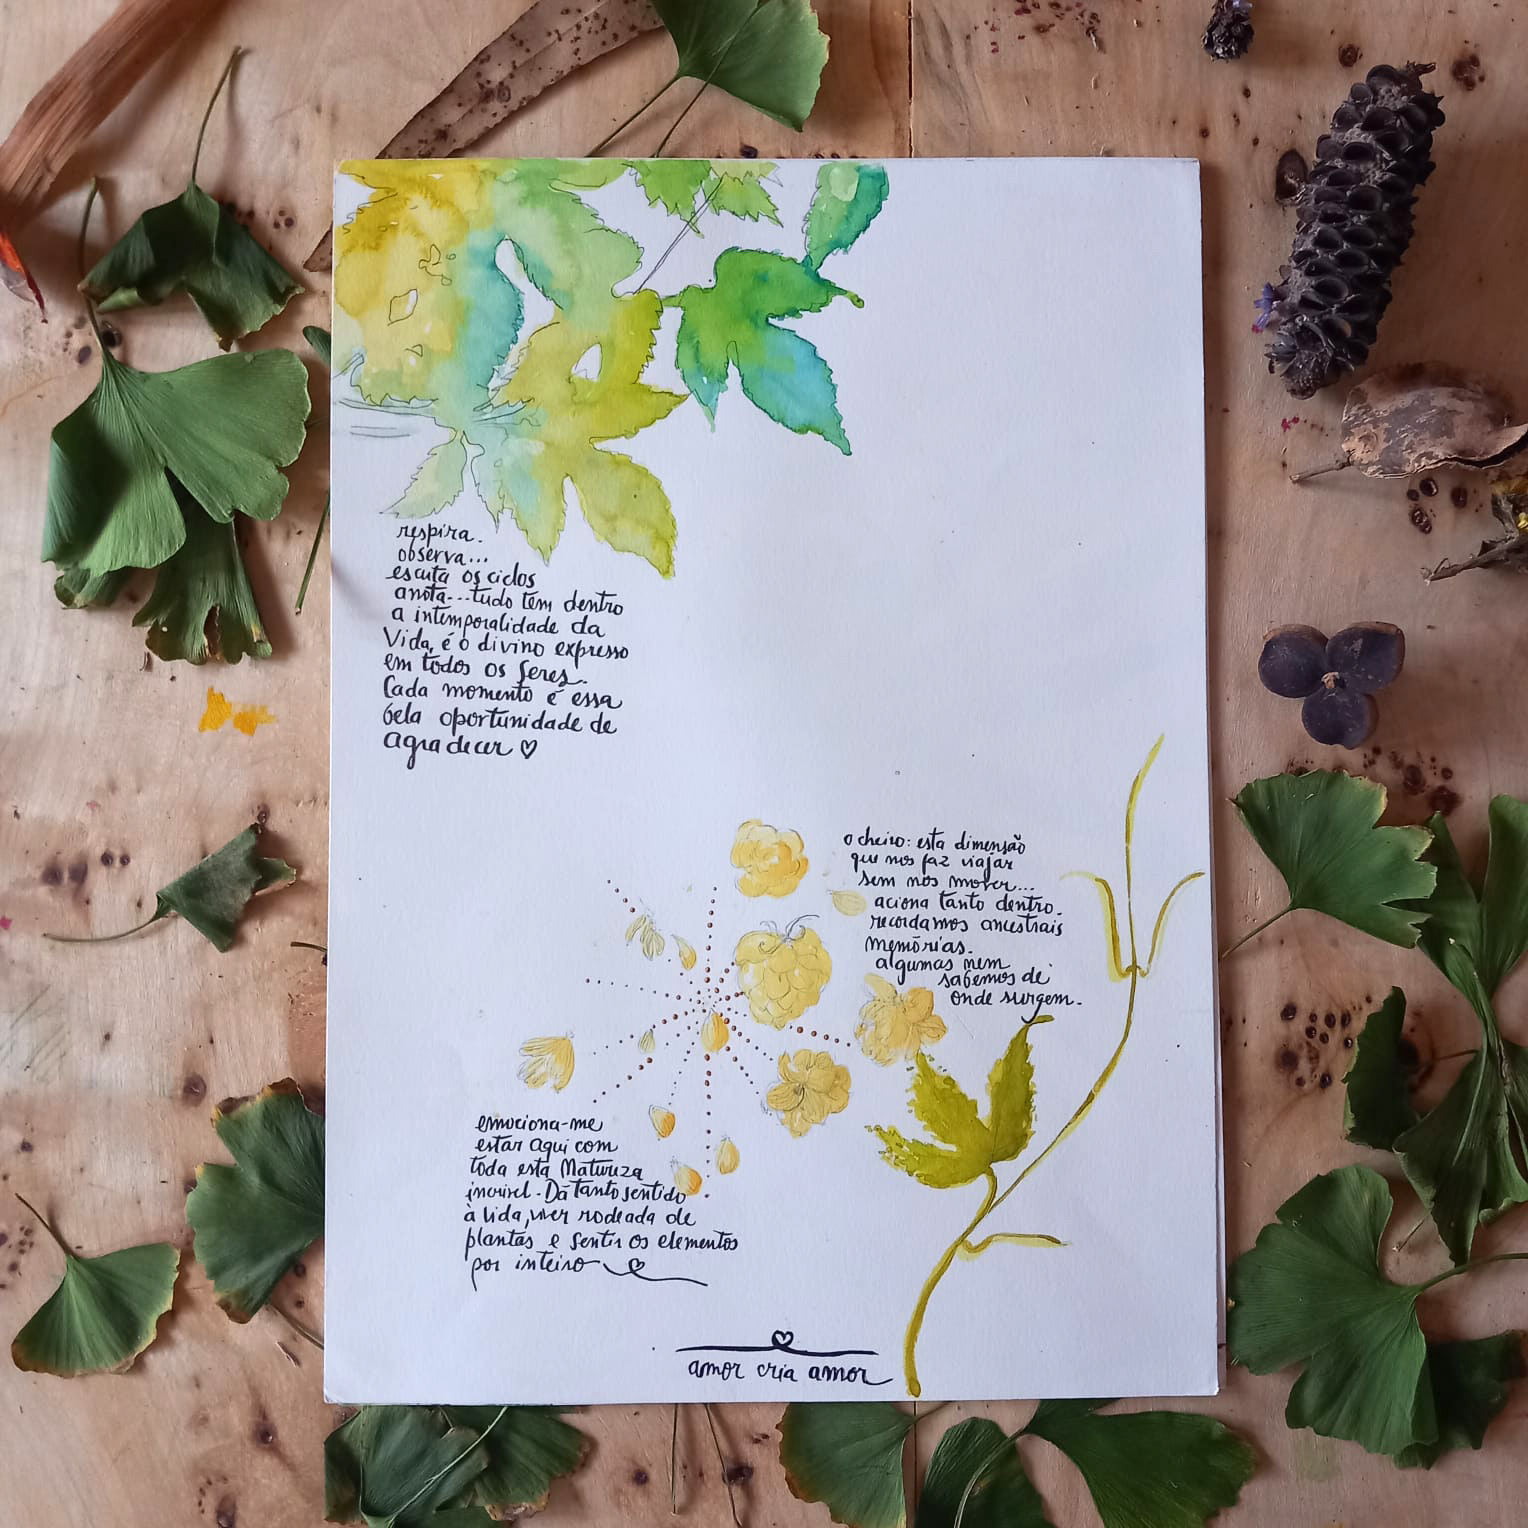 respira.
observa...
escuta os ciclos
anota...tudo tem dentro
a intemporalidade da
Vida, é o divino expresso
em todos os Seres.
Cada momento é essa
bela oportunidade de
agradecer ♡
o cheiro: esta dimensão
que nos faz viajar
sem nos mover...
aciona tanto dentro.
recordamos ancestrais
memórias.
algumas nem
sabemos de
onde surgem.
emociona-me
estar aqui com
toda esta Natureza
incrível. Dá tanto sentido
à vida, viver rodeada de
plantas e sentir os elementos
por inteiro
amor cria amor